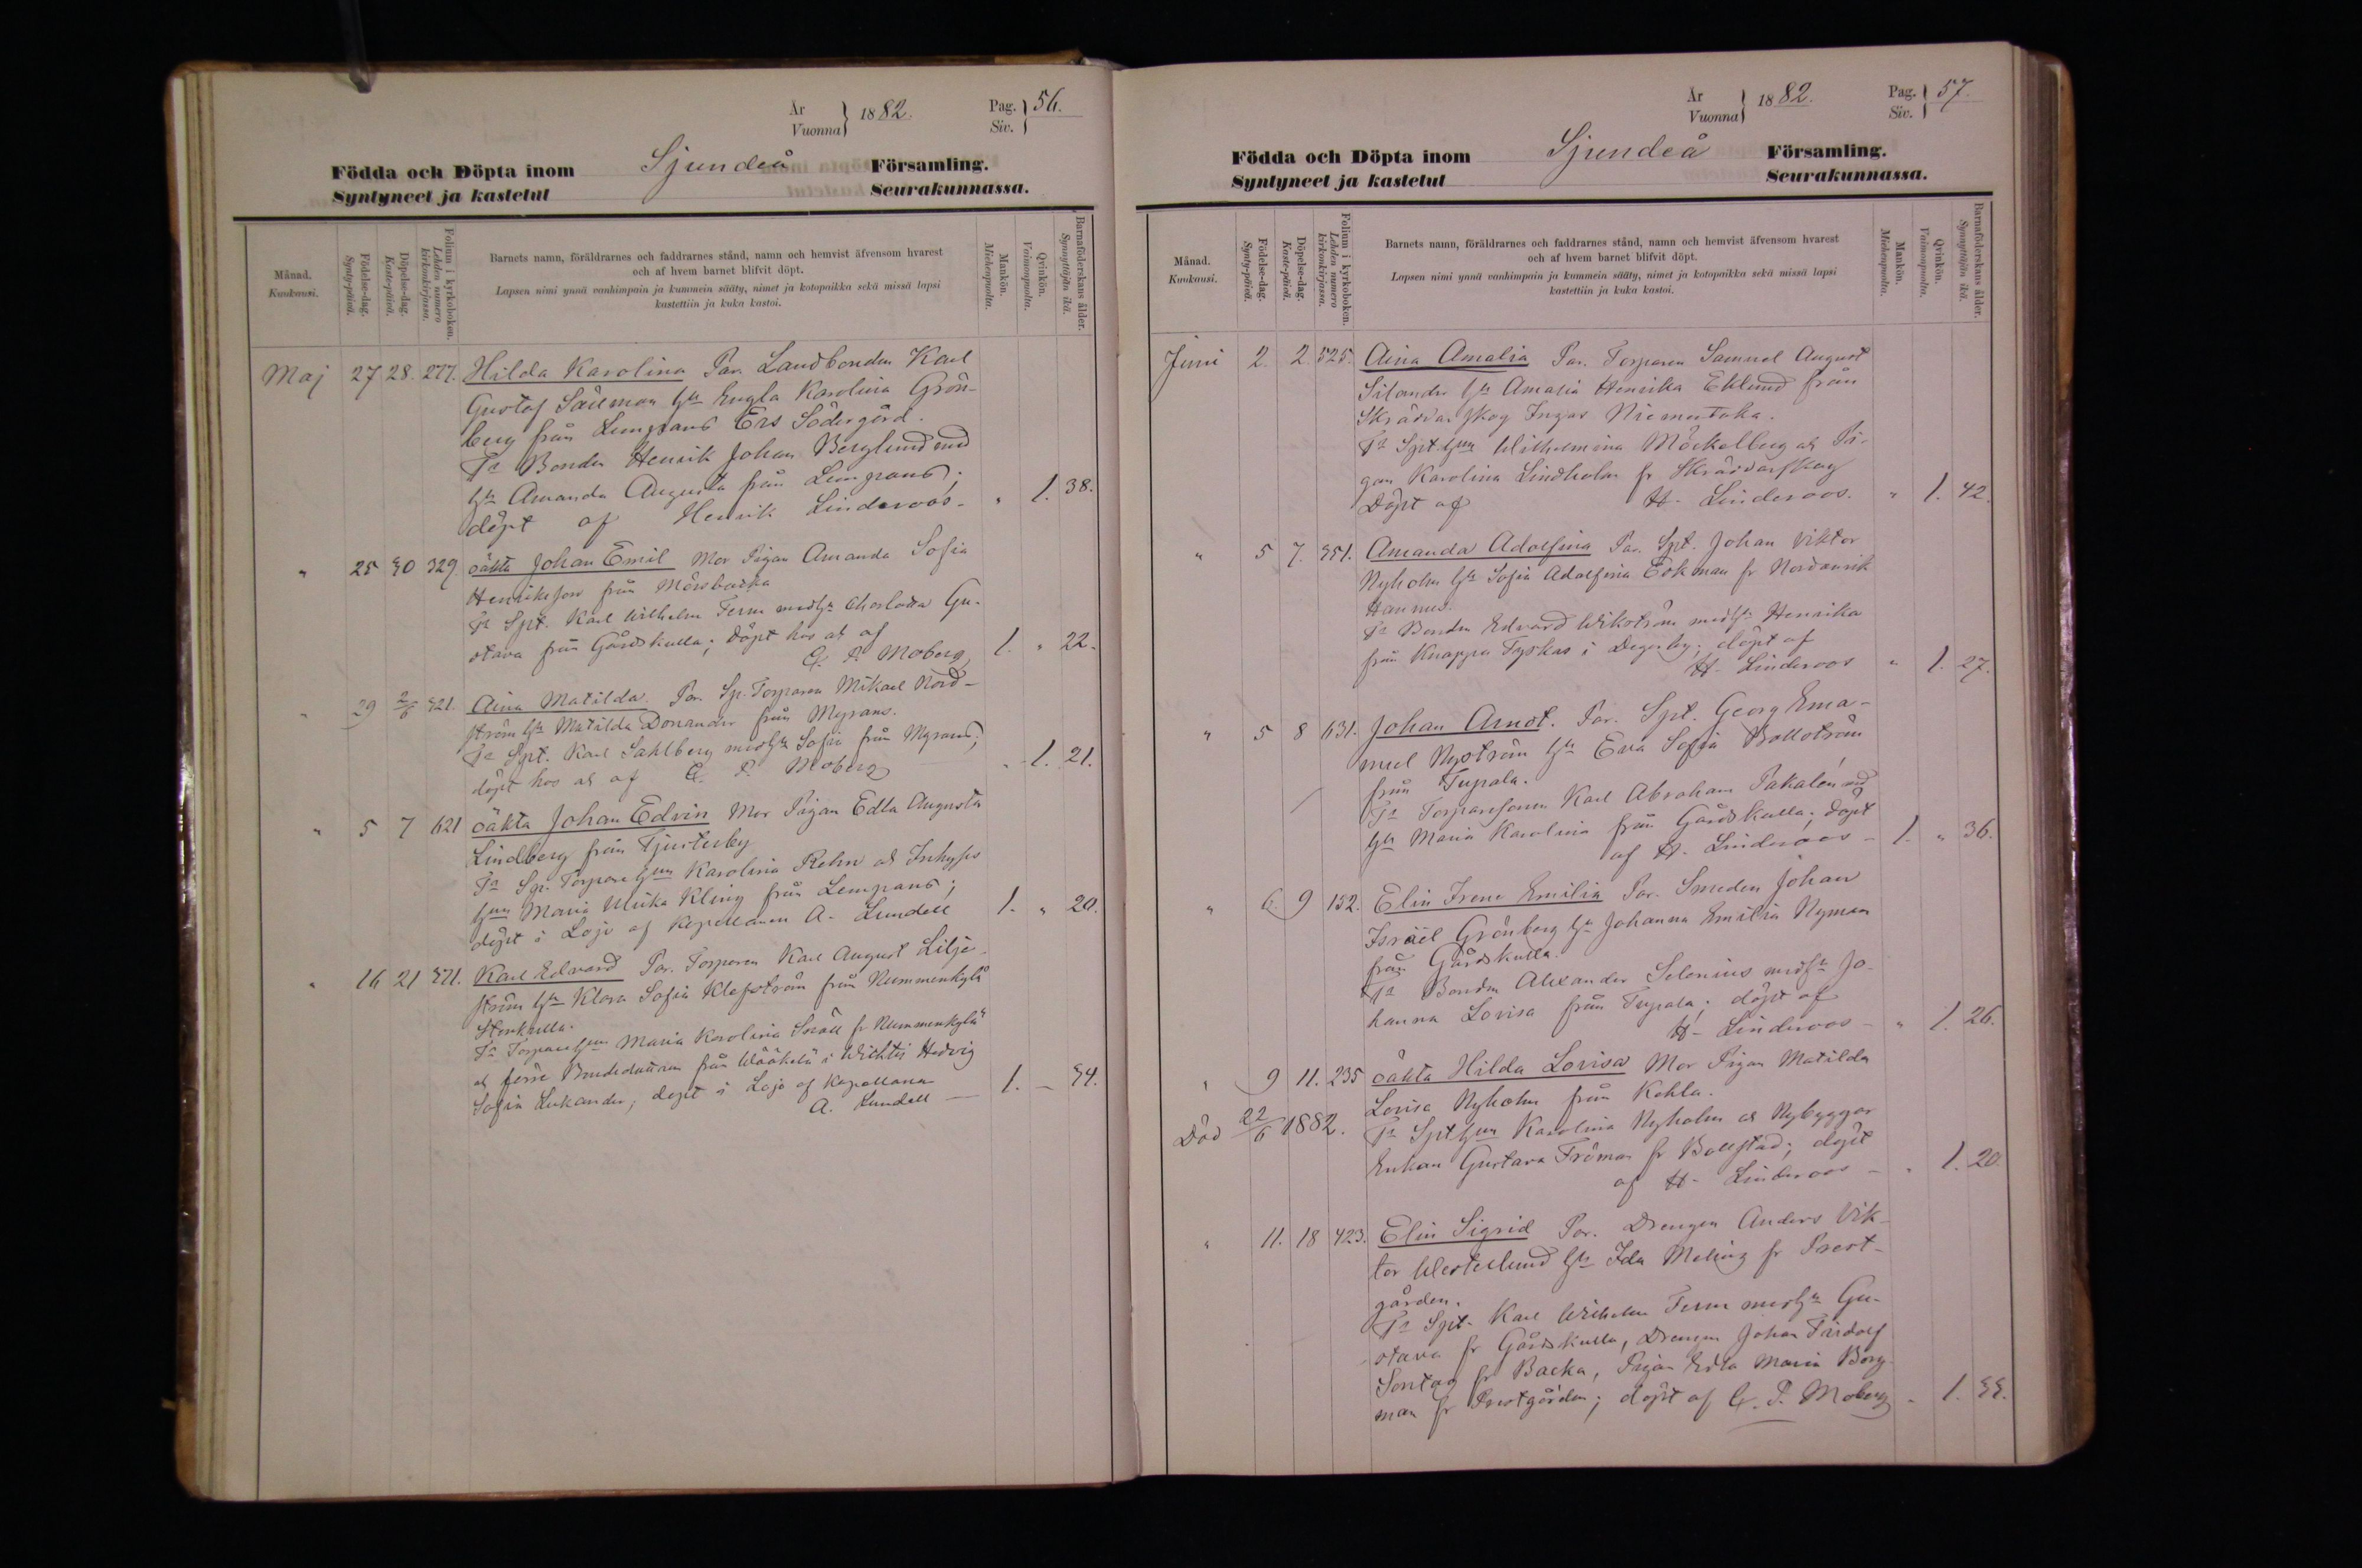 År
Vuonna
1882.
Pag.
Siv.
56.
Födda och Döpta inom Sjundeå Församling.
Syntyneet ja kastetut Seurakunnassa.
Månad.
Kuukausi.
Födelse-dag.
Synty-päivä.
Döpelse-dag.
Kaste-päivä.
Folium i kyrkoboken.
Lehden numero kirkonkirjassa.
Barnets namn, föräldrarnes och faddrarnes stånd, namn och hemvist äfvensom hvarest
och af hvem barnet blifvit döpt.
Lapsen nimi ynnä vanhimpain ja kummein sääty, nimet ja kotopaikka sekä missä lapsi
kastettiin ja kuka kastoi.
Mankön.
Miehenpuolta.
Qvinkön.
Vaimonpuolta.
Barnaföderskans ålder.
Synnyttäjän ikä.
Maj 27 28. 277. Hilda Karolina Par. Landbonden Karl
Gustaf Sällman hu Engla Karolina Grön-
berg från Lempans Ers Södergård.
Fa Bonden Henrik Johan Berglund med
hu Amanda Augusta från Lempans;
döpt af Henrik Linderoos - " 1. 38.
" 25 30 329 oäkta Johan Emil Mor Pigan Amanda Sofia
Henriksson från Mörsbacka
Fa Spt. Karl Wilhelm Ferm med hu Charlotta Gu-
stava från Gårdskulla; döpt hos ds af
G. P. Moberg 1. " 22.
" 29 2/6 321. Aina Matilda Par. Sp. Torparen Mikael Nord-
ström hu Matilda Donander från Myrans.
Fa Spt. Karl Sahlberg med hu Sofia från Myrans;
döpt hos ds af G. P. Moberg " 1. 21.
" 5 7 621 oäkta Johan Edvin Mor Pigan Edla Augusta
Lindberg från Tjusterby
Fa Sp. Torpare hun Karolina Rehn ds Inhyses
hun Maria Ulrika Kling från Lempans;
döpt i Lojo af Kapellanen A. Lundell 1. " 20.
" 16 21 371. Karl Edvard Par. Torparen Karl August Lilje-
ström hu Klara Sofia Klefström från Nummenkylä
Storkulla.
Fa Torpare hun Maria Karolina Snäll fr Nummenkylä
ds förre Bondedottren från Wääkelä i Wichtis Hedvig
Sofia Lukander, döpt i Lojo af Kapellanen
A. Lundell - 1. - 34.
År
Vuonna
1882.
Pag.
Siv.
57.
Födda och Döpta inom Sjundeå Församling.
Syntyneet ja kastetut Seurakunnassa.
Månad.
Kuukausi.
Födelse-dag.
Synty-päivä.
Döpelse-dag.
Kaste-päivä.
Folium i kyrkoboken.
Lehden numero kirkonkirjassa.
Barnets namn, föräldrarnes och faddrarnes stånd, namn och hemvist äfvensom hvarest
och af hvem barnet blifvit döpt.
Lapsen nimi ynnä vanhimpain ja kummein sääty, nimet ja kotopaikka sekä missä lapsi
kastettiin ja kuka kastoi.
Mankön.
Miehenpuolta.
Qvinkön.
Vaimonpuolta.
Barnaföderskans ålder.
Synnyttäjän ikä.
Juni 2. 2. 525. Aina Amalia Par. Torparen Samuel August
Silander hu Amalia Henrika Eklund från
Skräddarskog Ingas
Fa Spt. hun Wilhelmina Möckelberg ds Pi-
gan Karolina Lindholm fr Skräddarskog
Döpt af H. Linderoos. " 1. 42.
" 5 7. 351. Amanda Adolfina Par. Spt. Johan Viktor
Nyholm hu Sofia Adolfina Eckman fr Nordanvik
Hannus.
Fa Bonden Edvard Wikström med hu Henrika
från Knappes Tyskas i Degerby; döpt af
H. Linderoos " 1. 27.
" 5 8 631. Johan Arnot. Par. Spt. Georg Ema-
nuel Nyström hu Eva Sofia Bollström
från Tupala.
Fa Torparesonen Karl Abraham Pakalén med
hu Maria Karolina från Gårdskulla; döpt
af H. Linderoos - 1. " 36.
" 6. 9 132. Elin Irene Emilia Par. Smeden Johan
Israel Grönberg hu Johanna Emilia Nyman
från Gårdskulla.
Fa Bonden Alexander Selenius med hu Jo-
hanna Lovisa från Tupala; döpt af
H. Linderoos - " 1. 26.
" 9 11. 235 oäkta Hilda Lovisa Mor Pigan Matilda
Lovisa Nyholm från Kehla.
Död 22/6 1882. Fa Spt hun Karolina Nyholm ds Nybyggar
Enkan Gustava Fröman fr Bollstad; döpt
af H. Linderoos - " 1. 20
" 11. 18 423. Elin Sigrid Par. Drengen Anders Vik-
tor Westerlund hu Ida Meling fr Prest-
gården.
Fa Spt. Karl Wilhelm Ferm med hu Gu-
stava fr Gårdskulla, Drengen Johan Färdolf
Sontag fr Backa, Pigan Edla Maria Borg-
man fr Prestgården; döpt af G. P. Moberg " 1. 33.